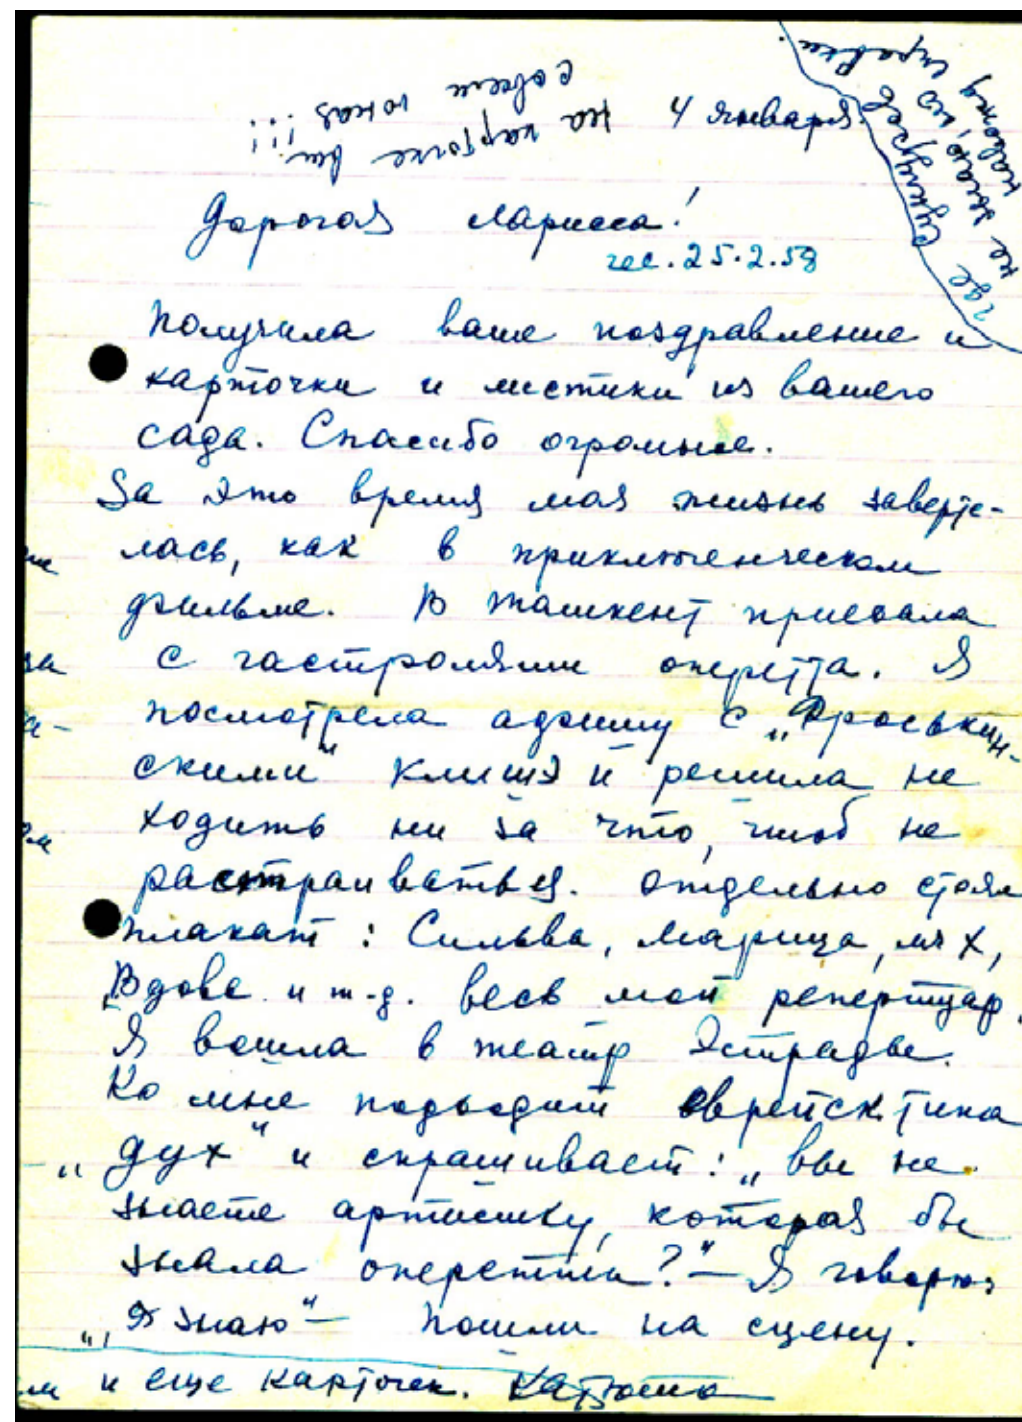 4 января.
на карточке вы
совсем юная!!!
где Сункурсев
не знаю, но
навожу справки.
Дорогая Лариса!
рес. 25.2.58
Получила ваше поздравление и
карточки и листики из вашего
сада. Спасибо огромное.
За это время моя жизнь заверте-
лась, как в приключенческом
фильме. В Ташкент приехала
с гастролями оперетта. Я
посмотрела афишу с „Фроськин-
скими" клишэ и решила не
ходить ни за что, чтоб не
расстраиваться. Отдельно стоял
плакат: Сильва, Марица, м-х,
Вдова и т-д. весь мой репертуар.
Я вошла в театр Эстрады.
Ко мне подходит еврейск. типа
„дух" и спрашивает: „вы не
знаете артистку, которая бы
знала оперетты?" — Я говорю:
„Я знаю" — Пошли на сцену.
и еще карточек. Катюша